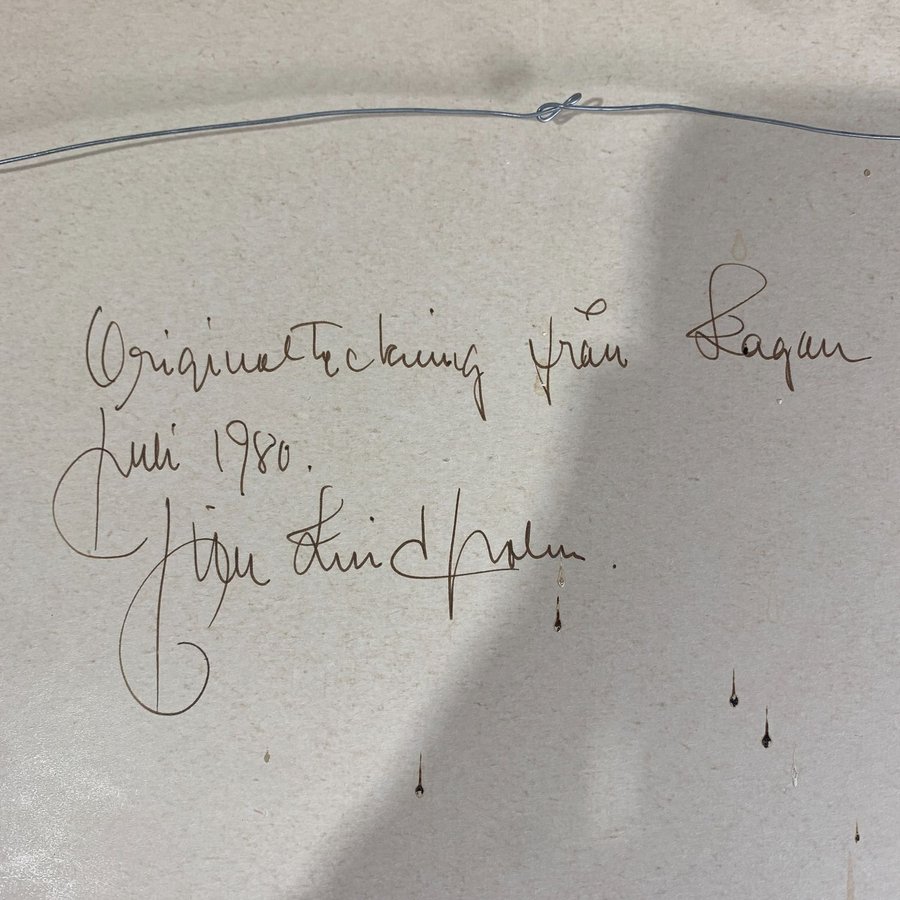 Originalteckning från Ragan
Juli 1980.
Lindholm.